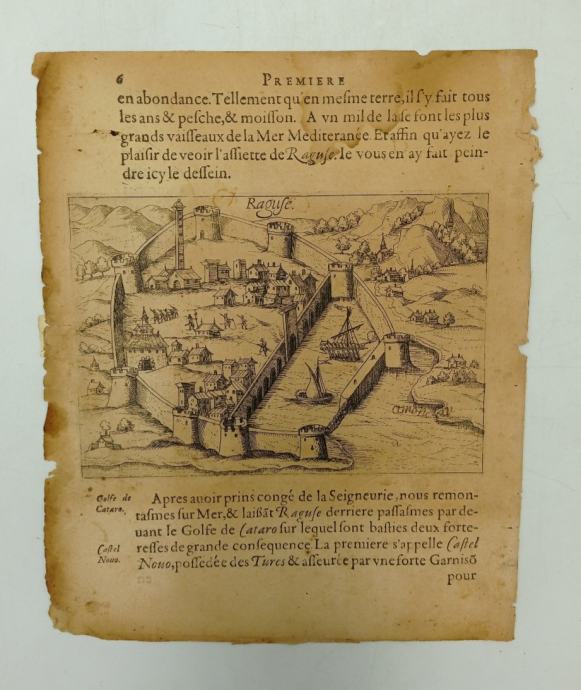 6 PREMIERE
en abondance. Tellement qu'en mesme terre, il s'y fait tous
les ans & pesche, & moisson. A vn mil de la se font les plus
grands vaisseaux de la Mer Mediteranée. Et affin qu'ayez le
plaisir de veoir l'assiette de Raguse. Ie vous en ay fait pein-
dre icy le dessein.
Raguse.
Golfe de
Cataro.
Apres auoir prins congé de la Seigneurie, nous remon-
tasmes sur Mer, & laissãt Raguse derriere passasmes par de-
uant le Golfe de Cataro sur lequel sont basties deux forte-
Castel
Nouo.
resses de grande consequence. La premiere s'appelle Castel
Nouo, possedée des Turcs & asseurée par vne forte Garnisõ
pour